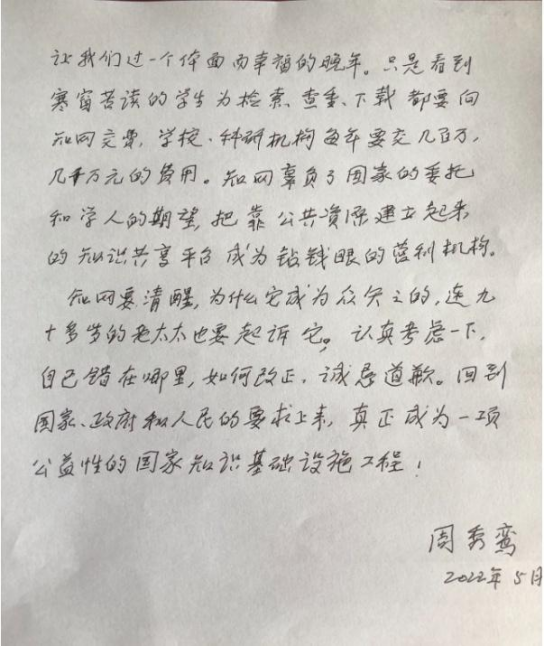 让我们过一个体面而幸福的晚年。只是看到
寒窗苦读的学生为检索、查重、下载都要向
知网交费，学校、科研机构每年要交几百万，
几千万元的费用。知网辜负了国家的委托
和学人的期望，把靠公共资源建立起来
的知识共享平台成为钻钱眼的营利机构。
知网要清醒，为什么它成为众矢之的，连九
十多岁的老太太也要起诉它。认真考虑一下，
自己错在哪里，如何改正，诚恳道歉。回到
国家、政府和人民的要求上来，真正成为一项
公益性的国家知识基础设施工程！
周秀鸾
2022年5月